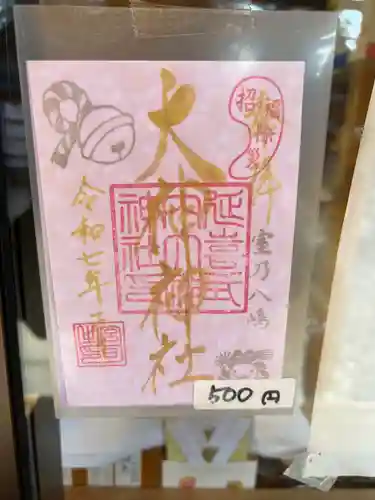 拝
室乃八嶋
大神神社
延喜式
内大神
神社印
令和七年
500円